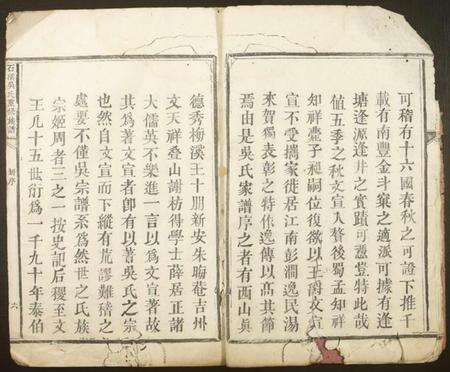 可稽有十六國春秋之可證下推千
載有南豐金斗棄之適派可據有逢
塘逢源逢井之實蹟可憑豈特此哉
値五季之秋文宣入贅後蜀孟知祥
知祥薨子昶嗣位後欲以王爵文宣
宣不受攜家徙居江南彭澗逸民湯
來賀獨表彰之特作逸傳以高其節
焉由是吳氏家譜序之者有西山眞
德秀梅溪王十朋新安朱晦菴吉州
文天祥疊山謝枋得學士薛居正諸
大儒莫不樂進一言以爲文宣著故
其爲著文宣者卽有以著吳氏之宗
也然自文宣而下縱有荒謬難稽之
處要不僅吳宗譜系爲然世之氏族
宗姬周者三之一按史記后稷至文
王凡十五世衍爲一千九十年泰伯
石溪吳氏重修族譜
舊序
六